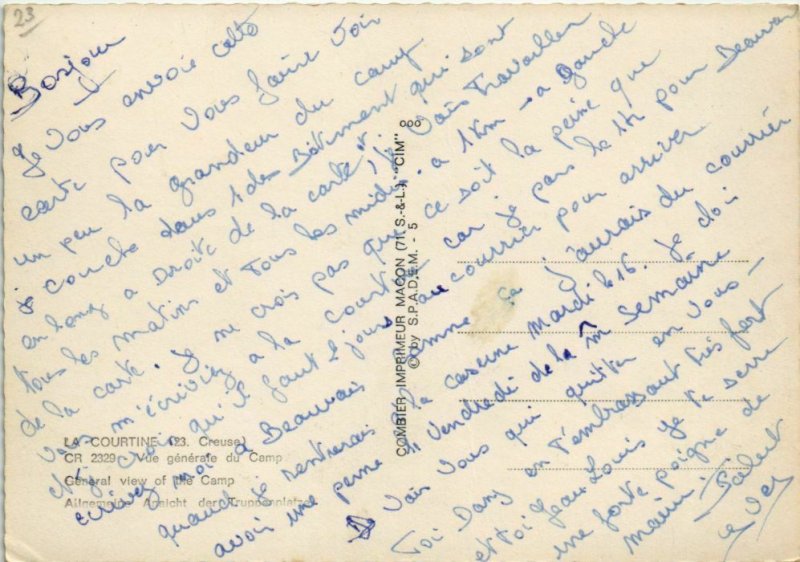 23
Bonjour
Je vous envoie cette
carte pour vous faire voir
un peu la grandeur du camp
Je couche dans 1 des Bâtiment qui sont
en long a Droite de la carte et je vais Travailler
tous les matins et tous les midi a 1 Km a gauche
de la carte. Je ne crois pas que ce soit la peine que
vous m'écriviez a la courtine car je pars le 14 pour Beauvais
et je crois qu'il faut 2 jours au courrier pour arriver
écrivez moi a Beauvais comme ça j'aurais du courrier
quand je rentrerais a la caserne mardi le 16. Je doi
avoir une perme le vendredi de la m semaine
Je vais vous qui quitter en vous
Toi Dany en t'embrassant très fort
et toi Jean Louis je te serre
une forte poigne de
main.
Salut
LA COURTINE (23. Creuse)
CR 2329 - Vue générale du Camp
General view of the Camp
Allgemeine Ansicht der Truppenplatze
COMBIER IMPRIMEUR MACON (71 S.-&-L.) "CIM"
© by S.P.A.D.E.M. - 5